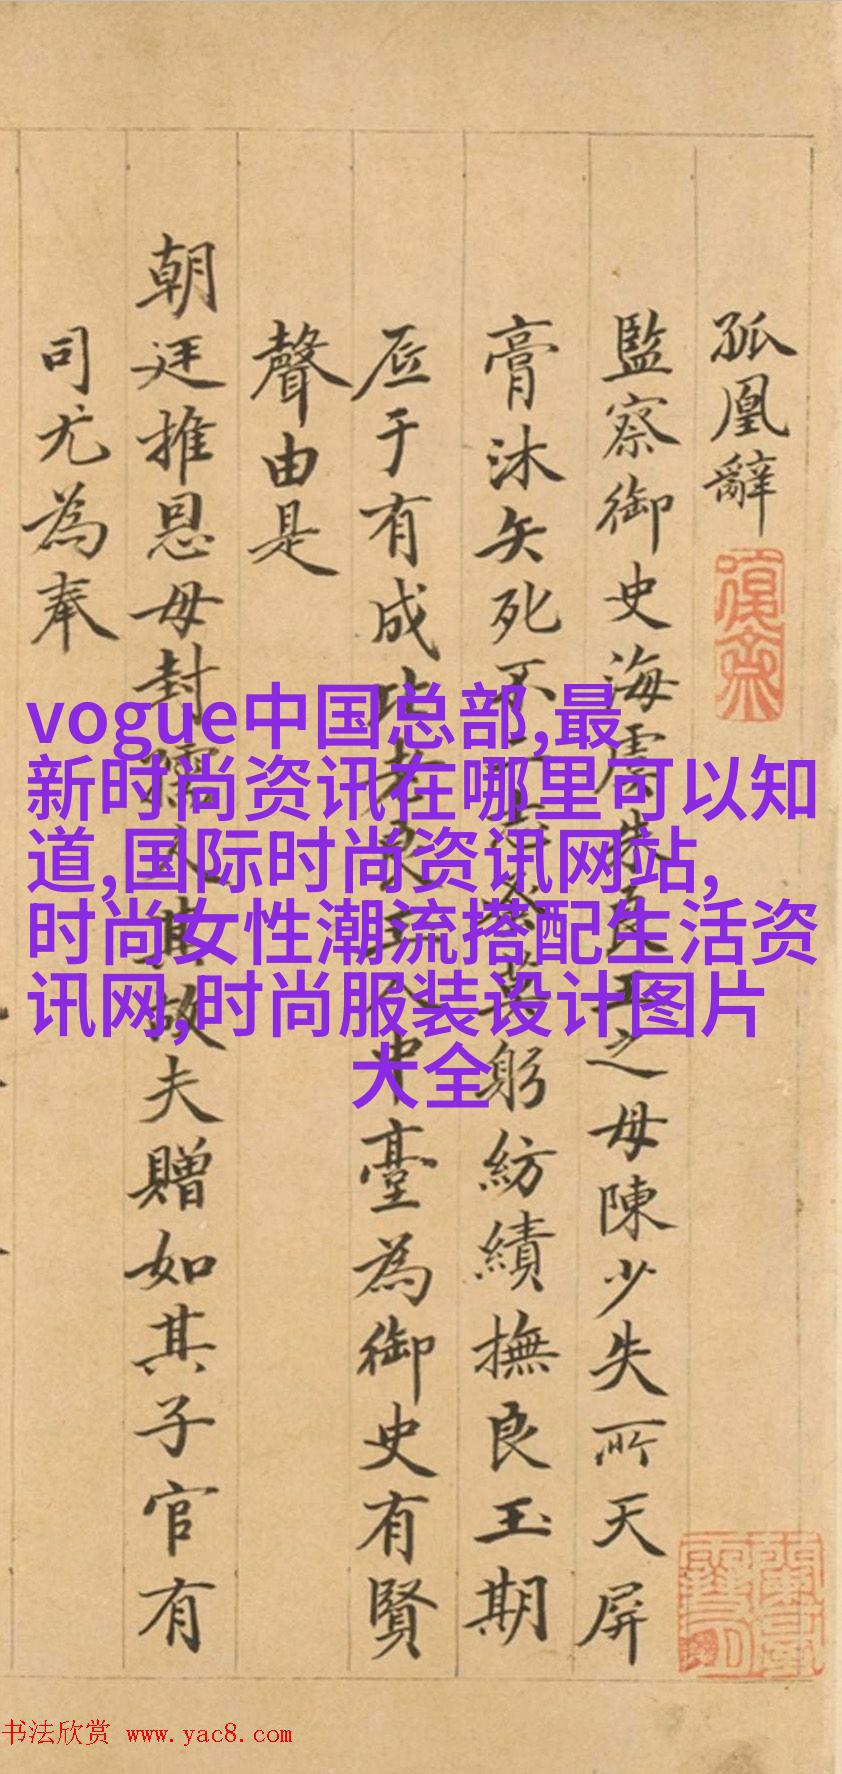 孤凰辭
監察御史海虞朱良玉之母陳少失所天屏
膏沐矢死不二志發躬紡績撫良玉期
底于有成功者良玉入中臺為御史有賢
聲由是
朝廷推恩母封孺人其故夫贈如其子官有
司尤為奉
vogue中国总部,最
新时尚资讯在哪里可以知
道,国际时尚资讯网站,
时尚女性潮流搭配生活资
讯网,时尚服装设计图片
大全
书法欣赏 www.yac8.com